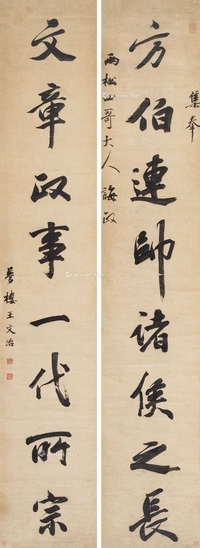 集奉
方伯連帥諸侯之長
雨松仁哥大人誨政
文章政事一代所宗
夢樓王文治